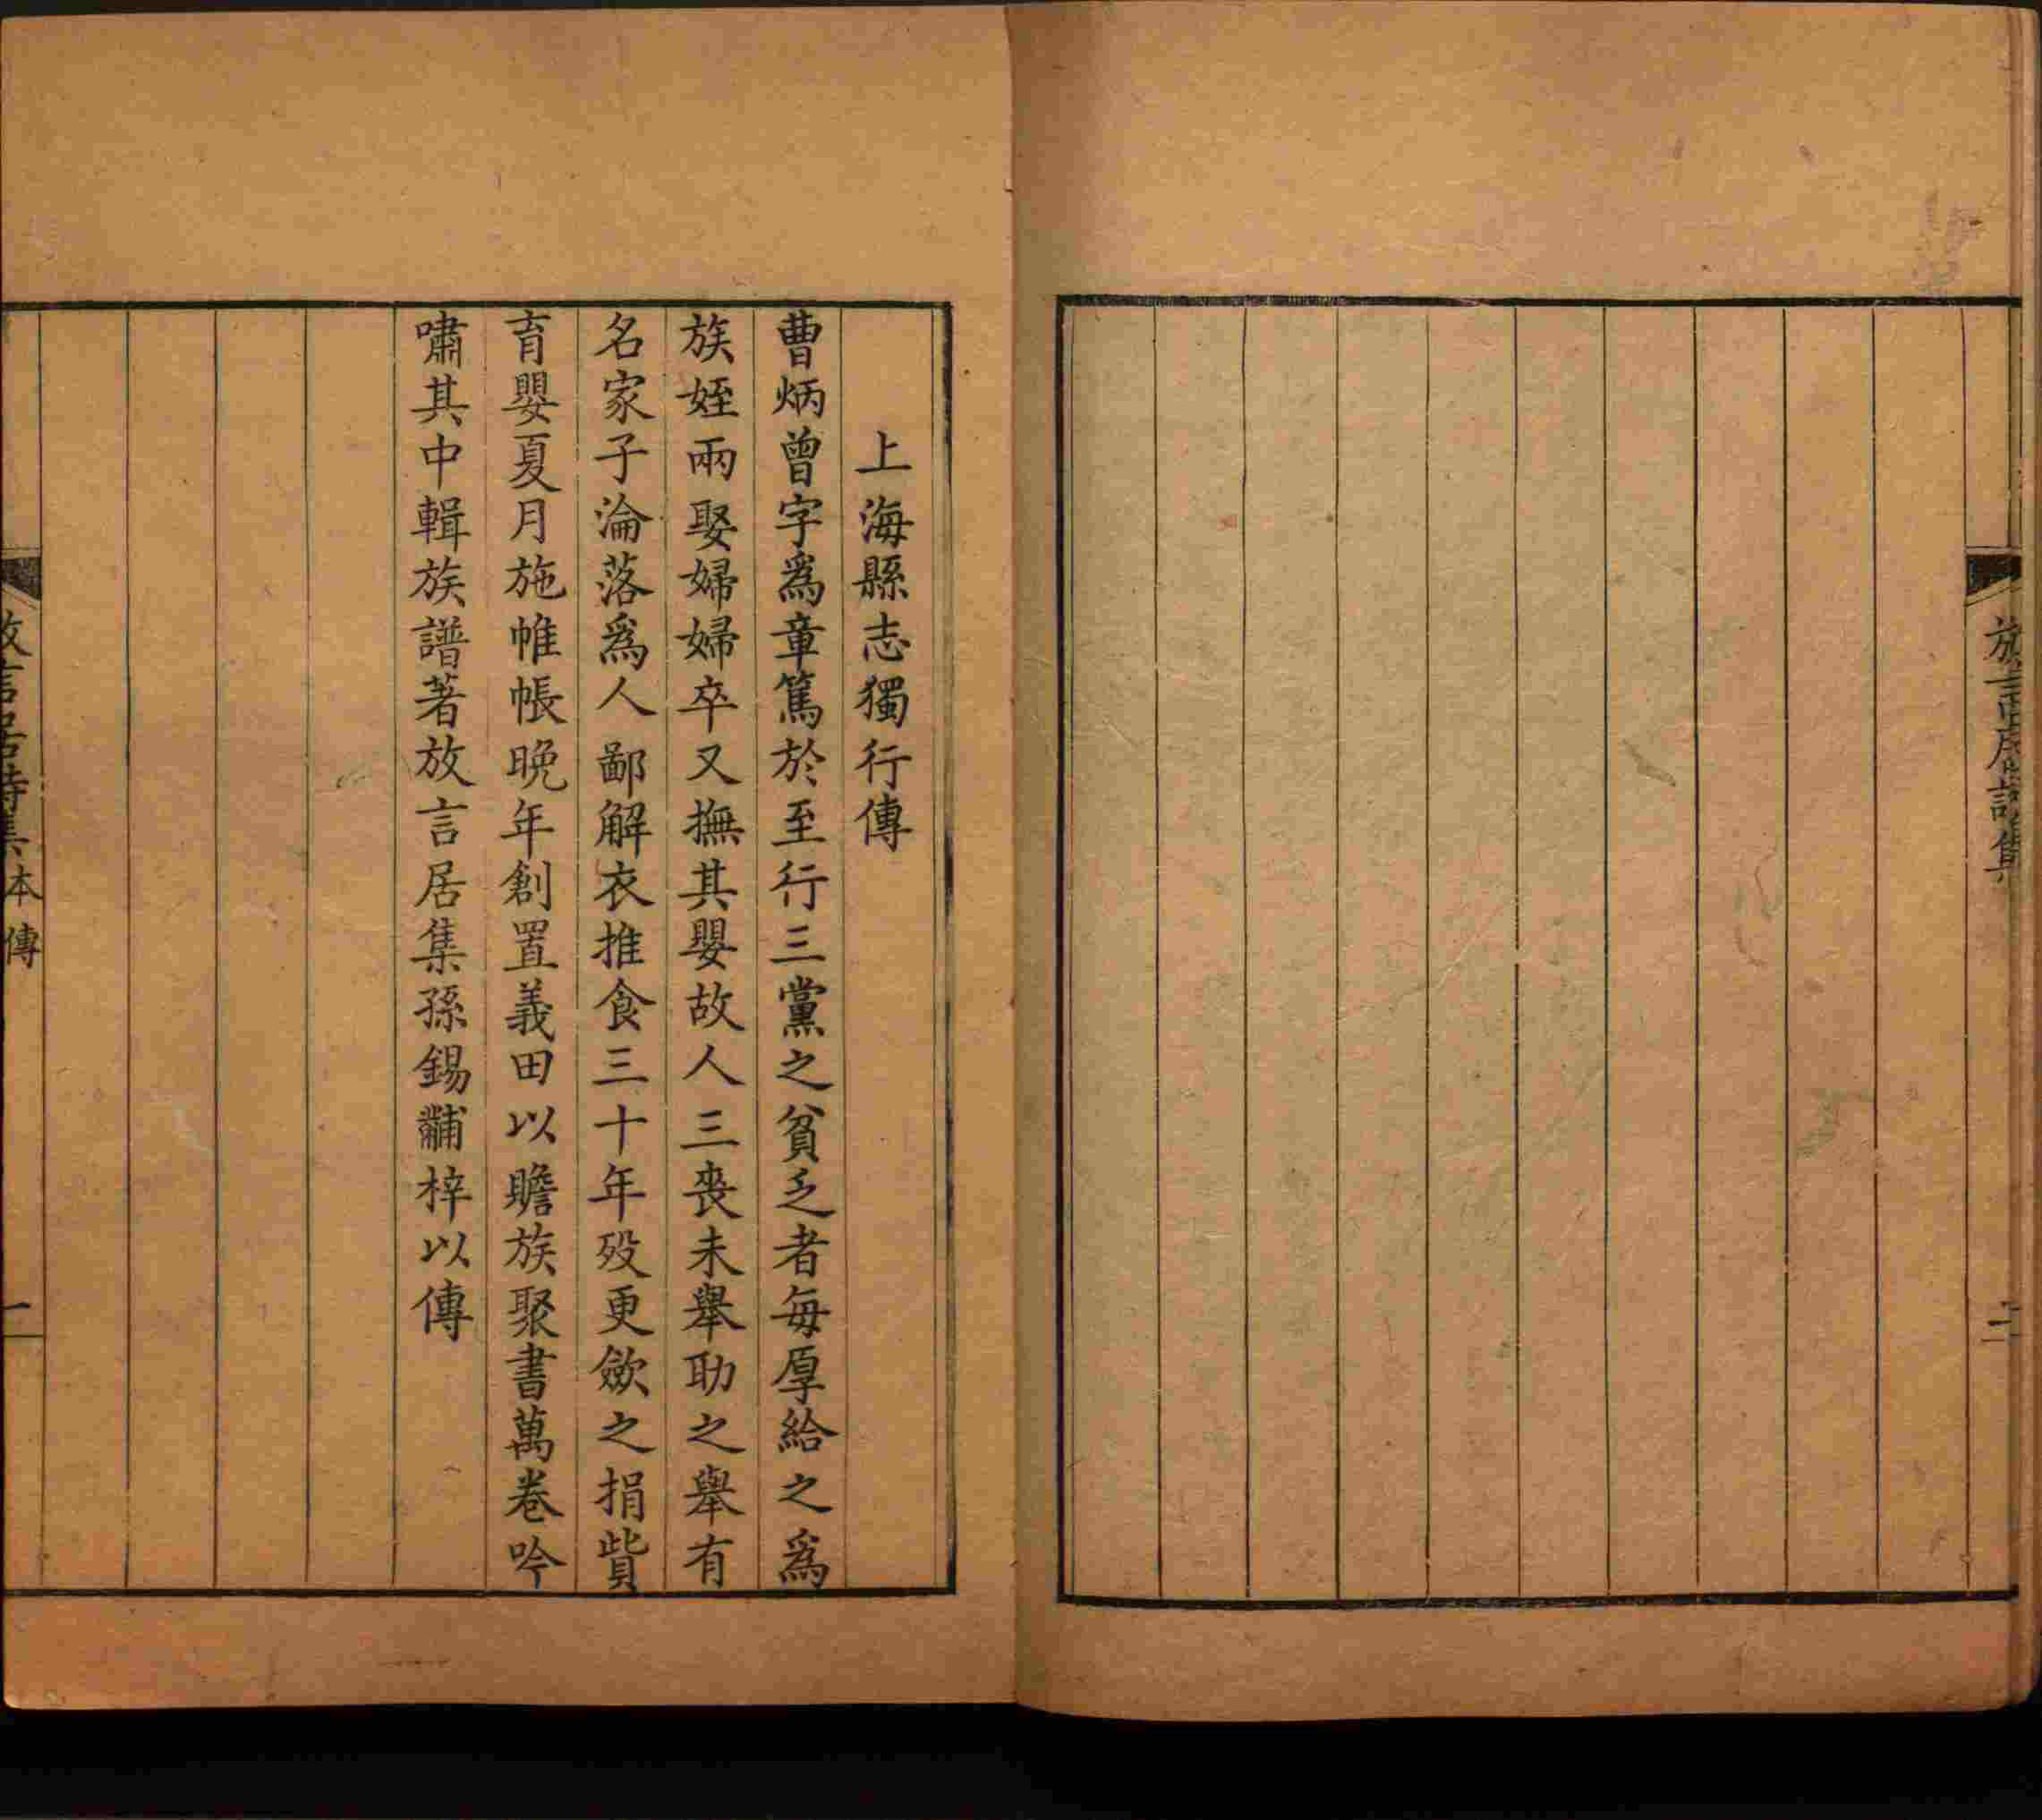 放言居詩集
二
上海縣志獨行傳
曹炳曾字爲章篤於至行三黨之貧乏者每厚給之爲
族姪兩娶婦婦卒又撫其嬰故人三喪未舉助之舉有
名家子淪落爲人鄙解衣推食三十年歿更歛之捐貲
育嬰夏月施帷帳晚年創置義田以贍族聚書萬卷吟
嘯其中輯族譜著放言居集孫錫黼梓以傳
放言居詩集本傳
一